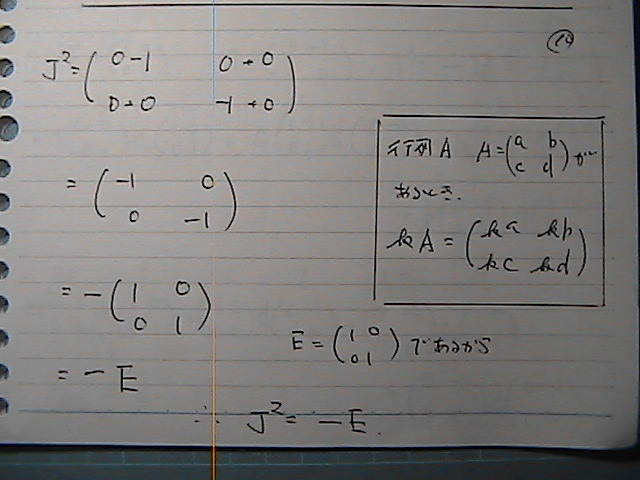 ⑭
J² = ( 0-1 0+0
0+0 -1+0 )
= ( -1 0
0 -1 )
= - ( 1 0
0 1 )
= - E
行列A A = ( a b
c d ) が
あるとき.
kA = ( ka kb
kc kd )
E = ( 1 0
0 1 ) であるから
∴ J² = -E.